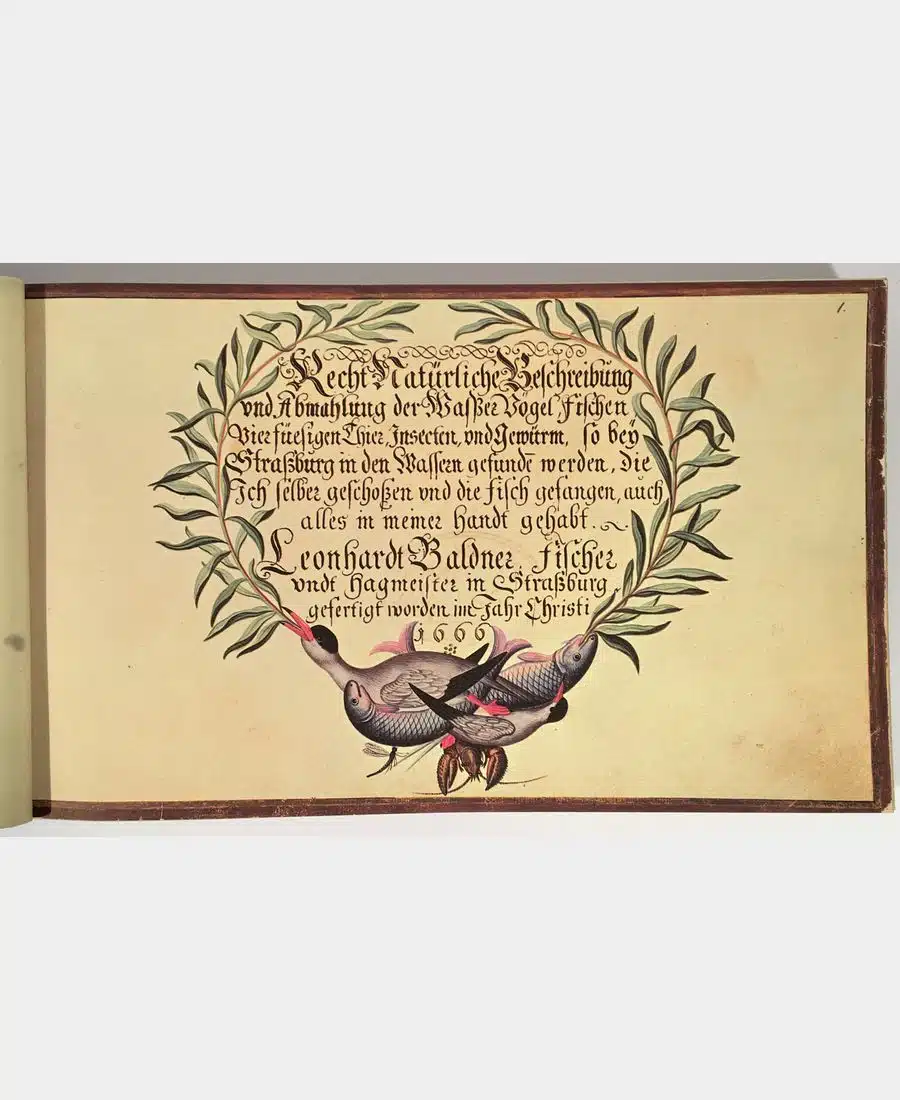 1.
Recht Natürliche Beschreibung
vnd Abmahlung der Waßer Vögel, Fischen
Vierfüesigen Thier, Insecten, vnd Gewürm, so bey
Straßburg in den Wassern gefunde werden, Die
Ich selber geschoßen vnd die fisch gefangen, auch
alles in meiner handt gehabt.
Leonhardt Baldner, fischer
vndt Hagmeister in Straßburg
gefertigt worden im Jahr Christi
1666